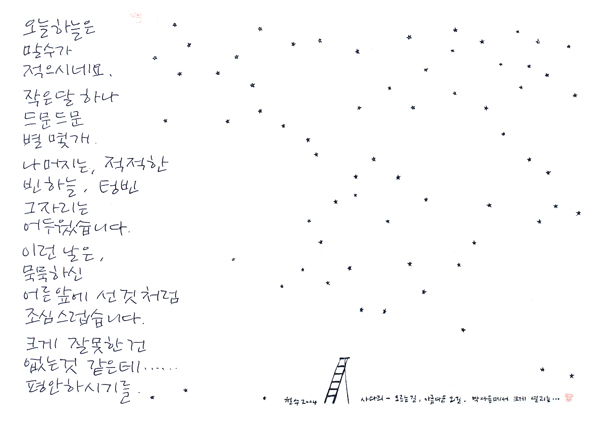 오늘하늘은
말수가
적으시네요.
작은달 하나
드문드문
별 몇개.
나머지는, 적적한
빈하늘. 텅빈
그자리는
어두웠습니다.
이런 날은,
묵묵하신
어른앞에 선것처럼
조심스럽습니다.
크게 잘못한건
없는것 같은데......
평안하시기를.
철수2004 사다리 - 오르는길, 아름다운 오길.